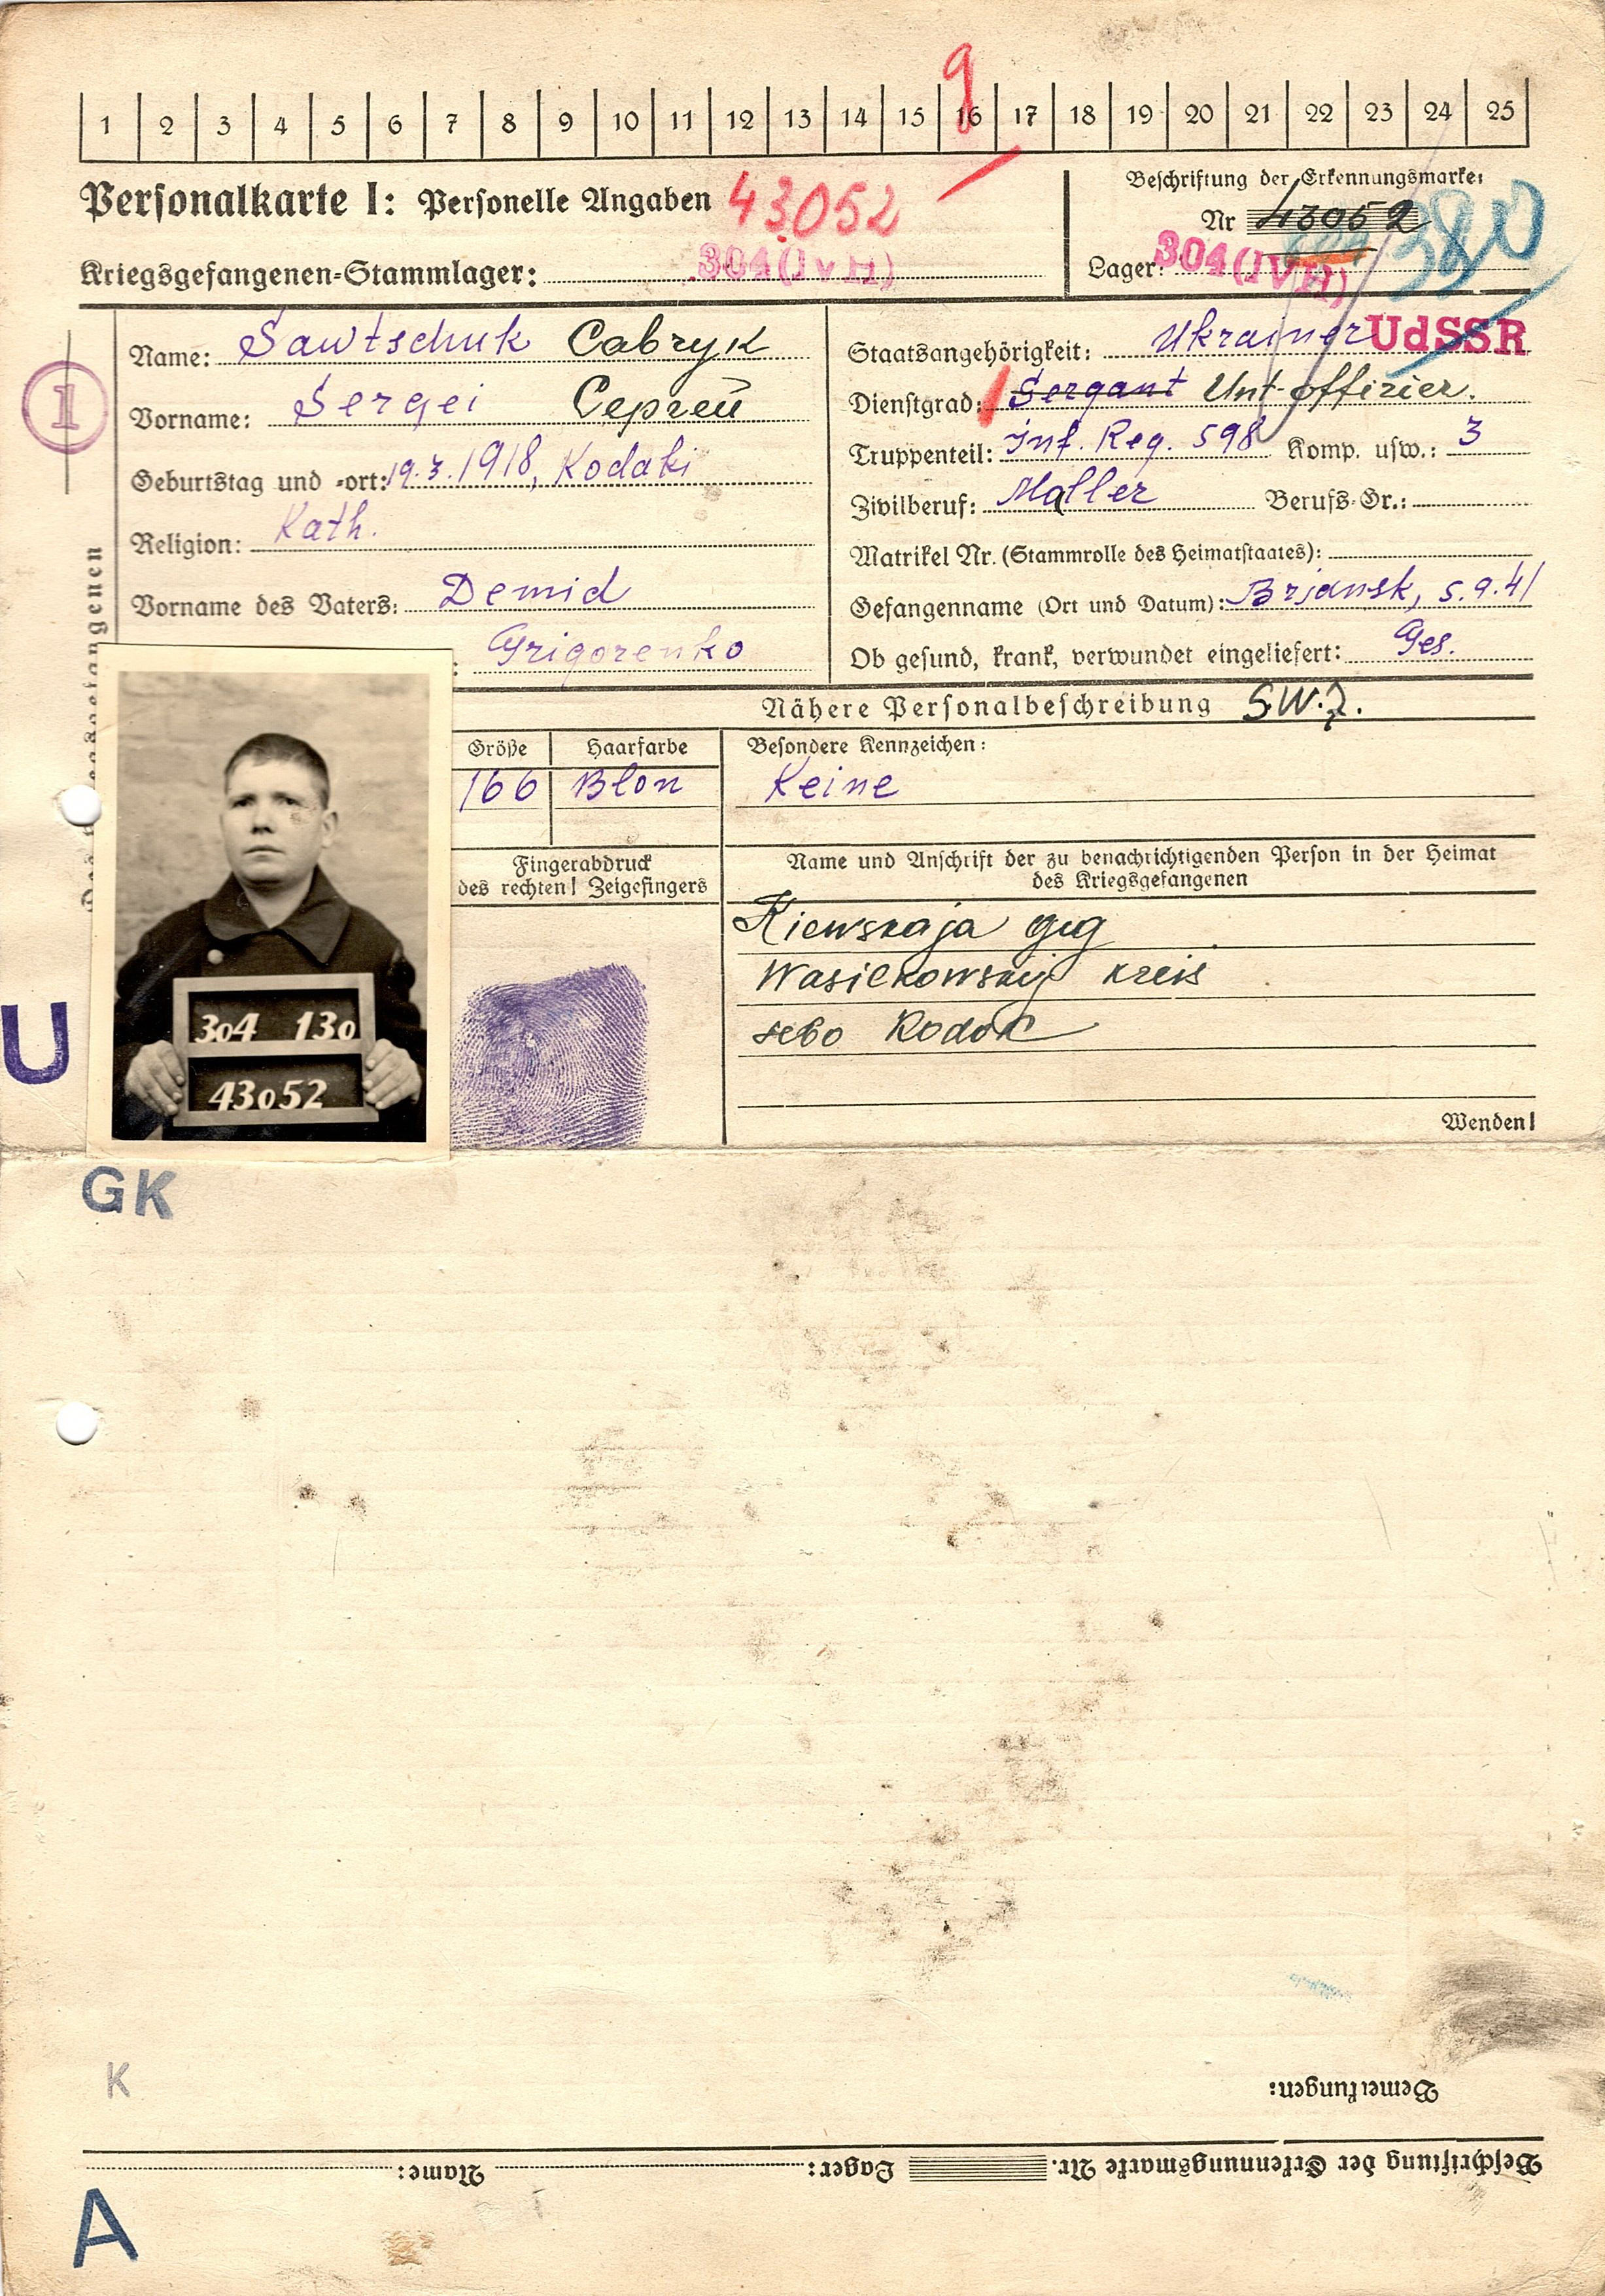 9
1 2 3 4 5 6 7 8 9 10 11 12 13 14 15 16 17 18 19 20 21 22 23 24 25
Personalkarte I: Personelle Angaben 43052
Kriegsgefangenen-Stammlager: 304 (IV H)
Beschriftung der Erkennungsmarke:
Nr 43052
Lager: 304 (IV H)
380
1
Name: Sawtschuk Савчук
Vorname: Sergei Сергей
Geburtstag und -ort: 19.3.1918, Kodaki
Religion: Kath.
Vorname des Vaters: Demid
: Grigorenko
Staatsangehörigkeit: Ukrainer UdSSR
Dienstgrad: Sergant Unt-offizier.
Truppenteil: Inf. Reg. 598 Komp. usw.: 3
Zivilberuf: Maller Berufs-Gr.:
Matrikel Nr. (Stammrolle des Heimatstaates):
Gefangenname (Ort und Datum): Brjansk, 5.9.41
Ob gesund, krank, verwundet eingeliefert: Ges.
Nähere Personalbeschreibung
Größe Haarfarbe Besondere Kennzeichen:
166 Blon Keine
Fingerabdruck
des rechten! Zeigefingers
Name und Anschrift der zu benachrichtigenden Person in der Heimat
des Kriegsgefangenen
Kiewskaja
Wasilkowskij kreis
Wenden!
304 130
43052
U
GK
K
Bemerkungen:
Beschriftung der Erkennungsmarke Nr. Lager: Name:
A